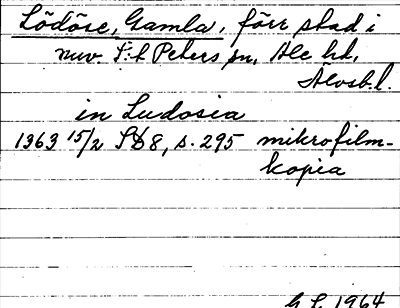 Lödöse, Gamla, förr stad i
nuv. S:t Peters sn, Ale hd,
Älvsb.l.
in Ludosia
1363 15/2 SD 8, s. 295 mikrofilm-
kopia
G.L. 1964